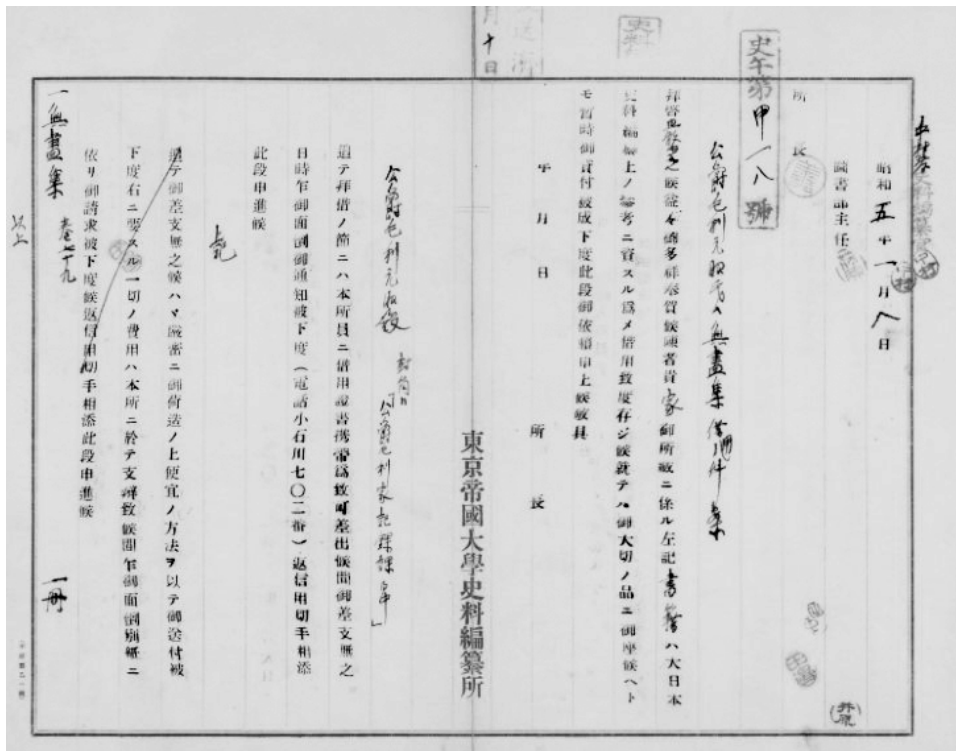 史料
月十日
史午第甲一八號
昭和五年一月八日
圖書部主任
所長
公爵毛利元昭氏ヘ無盡集借用ノ件案
拝啓益御多祥奉賀候陳者貴家御所蔵ニ係ル左記書籍ハ大日本
史料編纂上ノ参考ニ資スル為メ借用致度存ジ候就テハ御大切ノ品ニ御座候ヘト
モ暫時御貸付被成下度此段御依頼申上候敬具
年月日
所長
東京帝國大學史料編纂所
公爵毛利元昭殿
公爵毛利家記録課
追テ拝借ノ節ニハ本所員ニ借用證書携帯為致可差出候間御差支無之
日時乍御面倒御通知被下度(電話小石川七〇二番)返信用切手相添
此段申進候
追テ御差支無之候ハヾ厳密ニ御荷造ノ上便宜ノ方法ヲ以テ御送付被
下度右ニ要スル一切ノ費用ハ本所ニ於テ支辨致候間乍御面倒別紙ニ
依リ御請求被下度候返信用切手相添此段申進候
一無盡集
一冊
以上